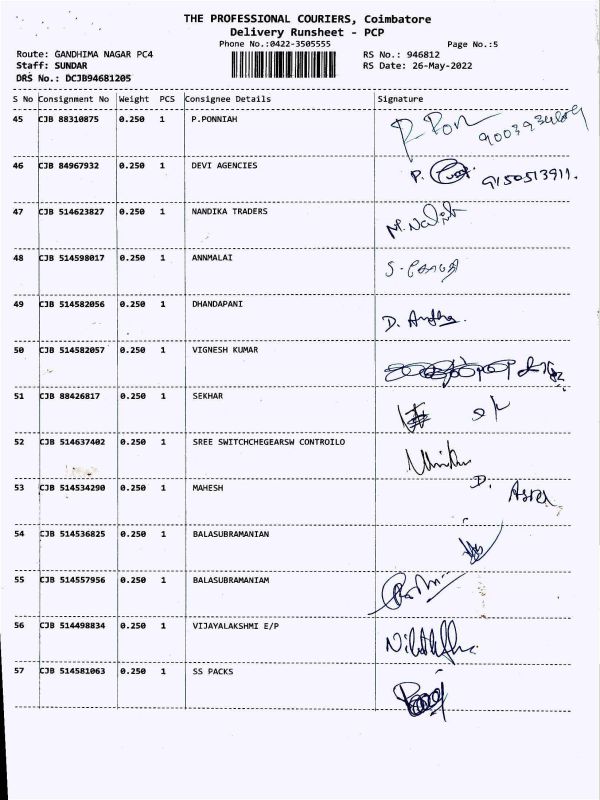 THE PROFESSIONAL COURIERS, Coimbatore
Delivery Runsheet - PCP
Phone No.:0422-3505555
Page No.:5
Route: GANDHIMA NAGAR PC4
RS No.: 946812
Staff: SUNDAR
RS Date: 26-May-2022
DRS No.: DCJB94681205
S No Consignment No Weight PCS Consignee Details Signature
45 CJB 88310875 0.250 1 P.PONNIAH
46 CJB 84967932 0.250 1 DEVI AGENCIES P. 9150513911.
47 CJB 514623827 0.250 1 NANDIKA TRADERS
48 CJB 514598017 0.250 1 ANNMALAI
49 CJB 514582056 0.250 1 DHANDAPANI D.
50 CJB 514582057 0.250 1 VIGNESH KUMAR
51 CJB 88426817 0.250 1 SEKHAR
52 CJB 514637402 0.250 1 SREE SWITCHCHEGEARSW CONTROILO
53 CJB 514534290 0.250 1 MAHESH D.
54 CJB 514536825 0.250 1 BALASUBRAMANIAN
55 CJB 514557956 0.250 1 BALASUBRAMANIAM
56 CJB 514498834 0.250 1 VIJAYALAKSHMI E/P
57 CJB 514581063 0.250 1 SS PACKS